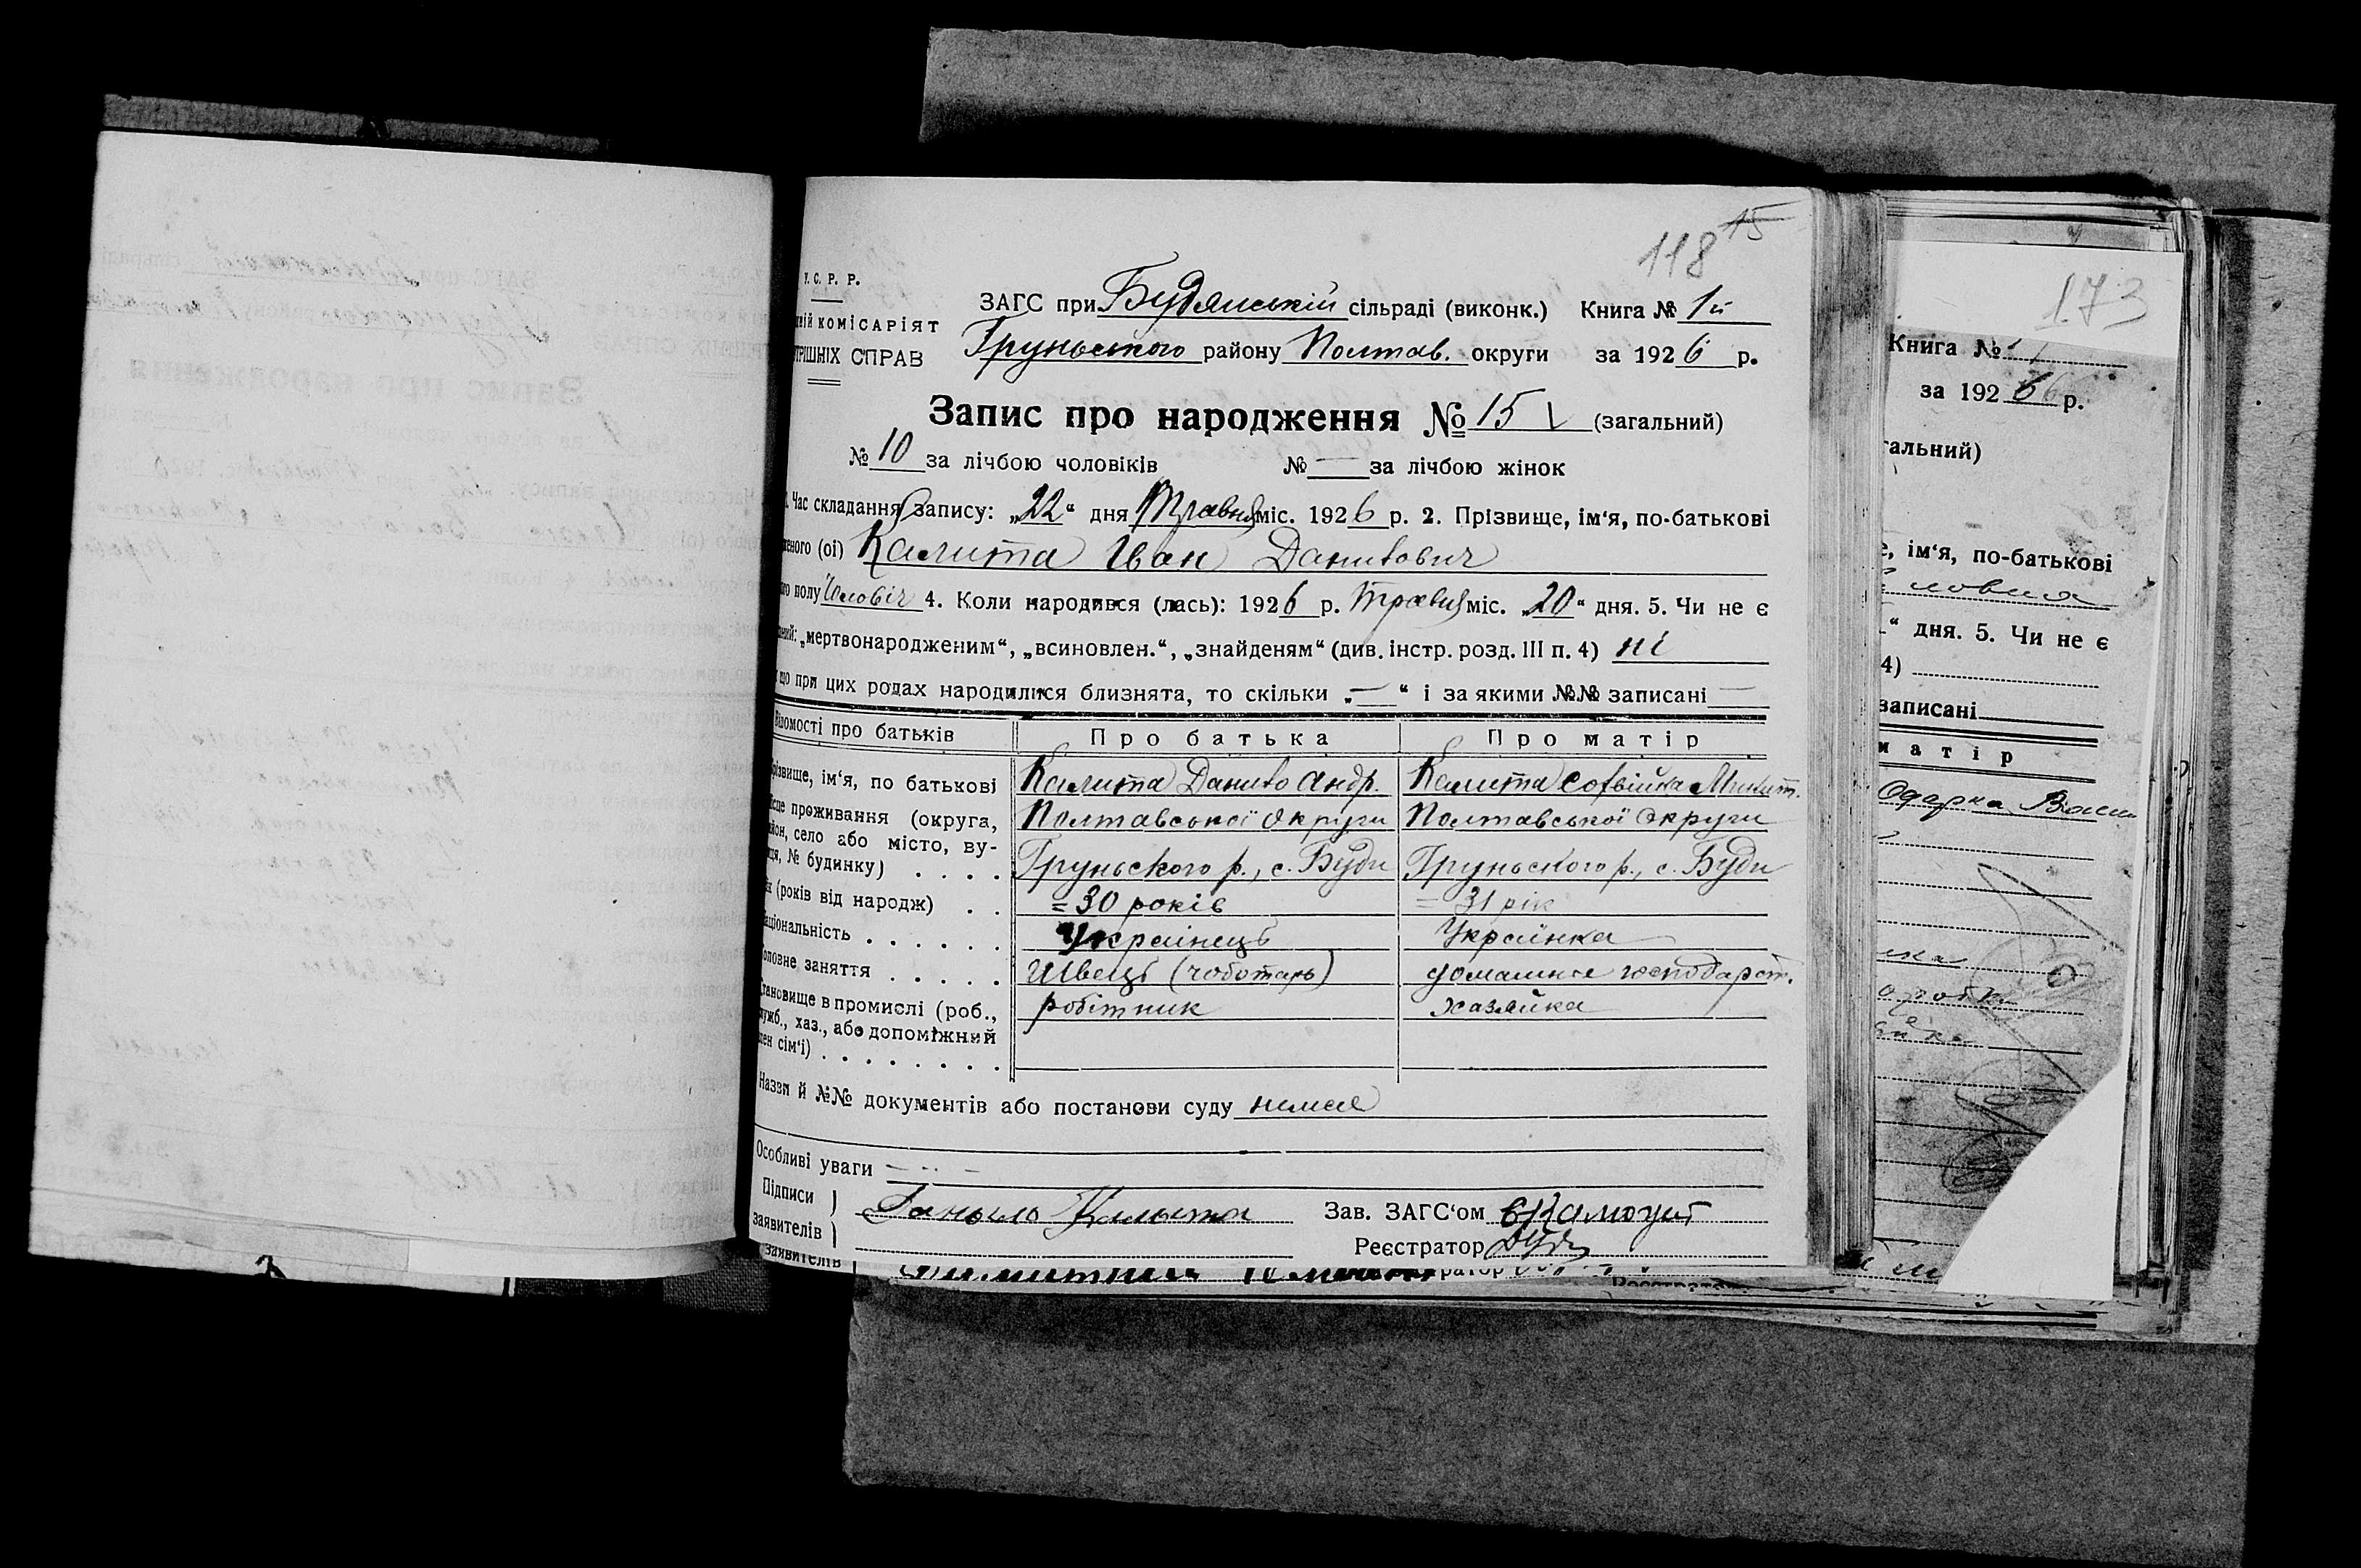 118 15
У. С. Р. Р.
ЗАГС при Будянській сільраді (виконк.) Книга № 1й
КОМІСАРІЯТ
Груньского району Полтав. округи за 1926 р.
СПРАВ
Запис про народження № 15 (загальний)
№ 10 за лічбою чоловіків № — за лічбою жінок
Час складання запису: „22“ дня Травня міс. 1926 р. 2. Прізвище, ім‘я, по-батькові
(ої) Калита Іван Данилович
полу Чоловіч 4. Коли народився (лась): 1926 р. Травня міс. „20“ дня. 5. Чи не є
„мертвонародженим“, „всиновлен.“, „знайденям“ (див. інстр. розд. III п. 4) ні
що при цих родах народилися близнята, то скільки „—“ і за якими №№ записані —
про батьків Про батька Про матір
ім‘я, по батькові Калита Данило Андр. Калита Софвійка Микит.
проживання (округа, Полтавської Округи Полтавської Округи
село або місто, ву-
№ будинку) . . . . Груньского р., с. Буди Груньского р., с. Буди
(років від народж) . . = 30 років = 31 рік
. . . . . . Українець Українка
заняття . . . . . Швець (чоботарь) домашнє господарст.
в промислі (роб., робітник хазяйка
хаз., або допоміжний
сім‘ї) . . . . . . .
Назви й №№ документів або постанови суду немає
Особливі уваги — .. —
Підписи Даныло Калыта Зав. ЗАГС‘ом
заявителів Реєстратор
заявителів
173
Книга №
за 1926 р.
ім‘я, по-батькові
“ дня. 5. Чи не є
4)
записані
матір
Одарка